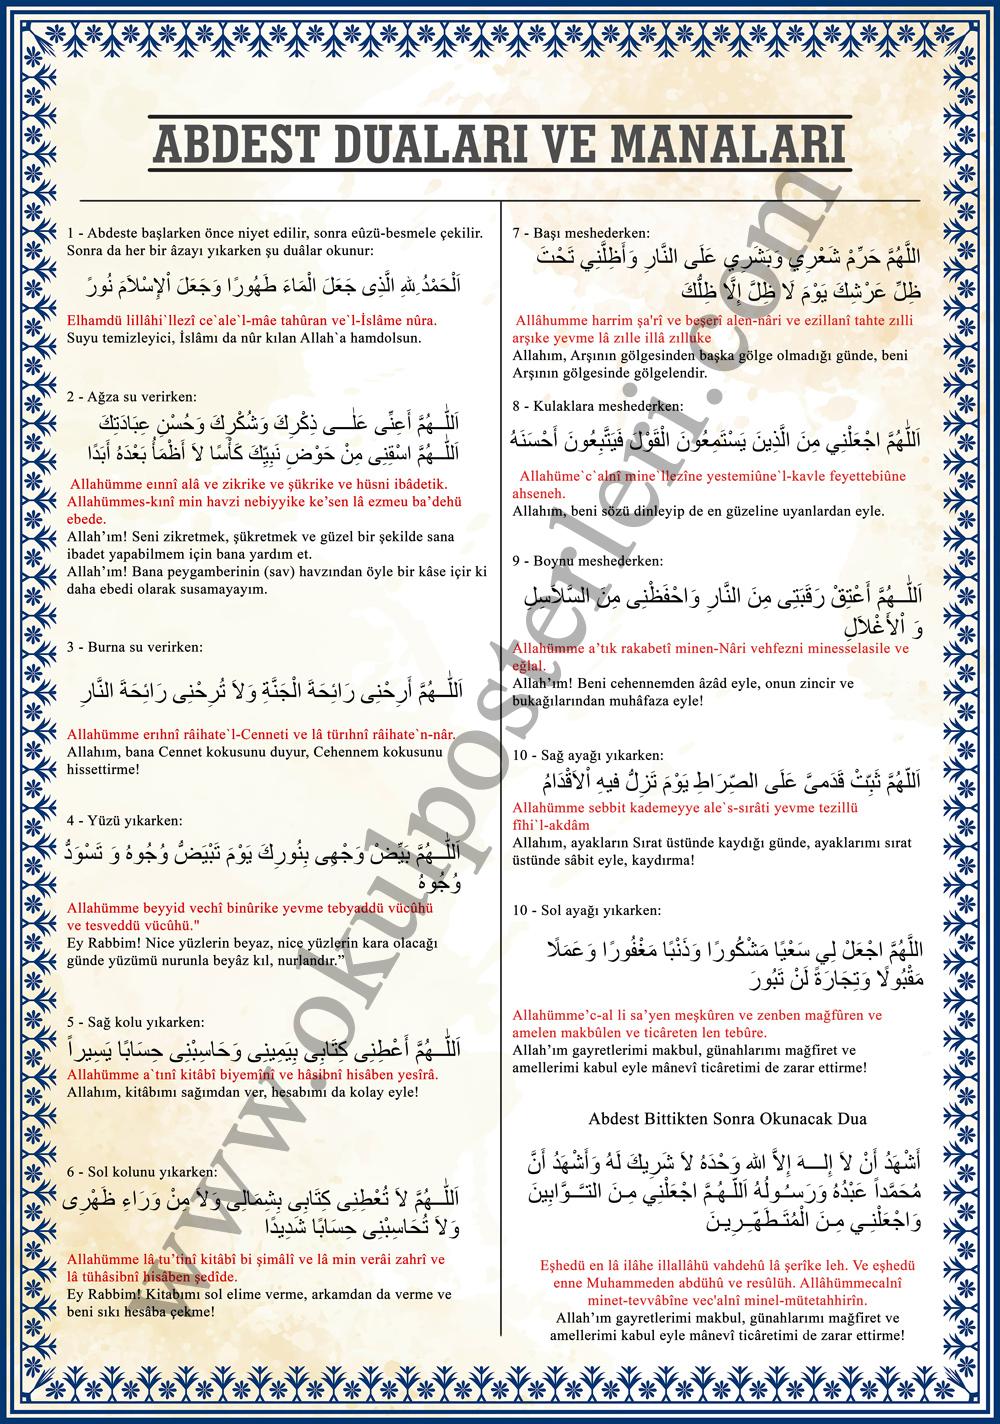 ABDEST DUALARI VE MANALARI
1 - Abdeste başlarken önce niyet edilir, sonra eûzü-besmele çekilir.
Sonra da her bir âzayı yıkarken şu duâlar okunur:
اَلْحَمْدُ لِلهِ الَّذِى جَعَلَ الْمَاءَ طَهُورًا وَجَعَلَ اْلإِسْلاَمَ نُورً
Elhamdü lillâhi`llezî ce`ale`l-mâe tahûran ve`l-İslâme nûra.
Suyu temizleyici, İslâmı da nûr kılan Allah`a hamdolsun.
2 - Ağza su verirken:
اَللّٰـهُمَّ أَعِنِّى عَلٰـى ذِكْرِكَ وَشُكْرِكَ وَحُسْنِ عِبَادَتِكَ
اَللّٰـهُمَّ اسْقِنِى مِنْ حَوْضِ نَبِيِّكَ كَأْسًا لاَ أَظْمَأُ بَعْدَهُ أَبَدًا
Allahümme eınnî alâ ve zikrike ve şükrike ve hüsni ibâdetik.
Allahümmes-kınî min havzi nebiyyike ke’sen lâ ezmeu ba’dehü
ebede.
Allah’ım! Seni zikretmek, şükretmek ve güzel bir şekilde sana
ibadet yapabilmem için bana yardım et.
Allah’ım! Bana peygamberinin (sav) havzından öyle bir kâse içir ki
daha ebedi olarak susamayayım.
3 - Burna su verirken:
اَللّٰـهُمَّ أَرِحْنِى رَائِحَةَ الْجَنَّةِ وَلاَ تُرِحْنِى رَائِحَةَ النَّارِ
Allahümme erıhnî râihate`l-Cenneti ve lâ türıhnî râihate`n-nâr.
Allahım, bana Cennet kokusunu duyur, Cehennem kokusunu
hissettirme!
4 - Yüzü yıkarken:
اَللّٰـهُمَّ بَيِّضْ وَجْهِى بِنُورِكَ يَوْمَ تَبْيَضُّ وُجُوهُ وَ تَسْوَدُّ
وُجُوهُ
Allahümme beyyid vechî binûrike yevme tebyaddü vücûhü
ve tesveddü vücûhü."
Ey Rabbim! Nice yüzlerin beyaz, nice yüzlerin kara olacağı
günde yüzümü nurunla beyâz kıl, nurlandır.”
5 - Sağ kolu yıkarken:
اَللّٰـهُمَّ أَعْطِنِى كِتَابِى بِيَمِينِى وَحَاسِبْنِى حِسَابًا يَسِيراً
Allahümme a`tınî kitâbî biyemînî ve hâsibnî hisâben yesîrâ.
Allahım, kitâbımı sağımdan ver, hesabımı da kolay eyle!
6 - Sol kolunu yıkarken:
اَللّٰـهُمَّ لاَ تُعْطِنِى كِتَابِى بِشِمَالِى وَلاَ مِنْ وَرَاءِ ظَهْرِى
وَلاَ تُحَاسِبْنِى حِسَابًا شَدِيدًا
Allahümme lâ tu’tinî kitâbî bi şimâlî ve lâ min verâi zahrî ve
lâ tühâsibnî hisâben şedîde.
Ey Rabbim! Kitabımı sol elime verme, arkamdan da verme ve
beni sıkı hesâba çekme!
7 - Başı meshederken:
اللَّهُمَّ حَرِّمْ شَعْرِي وَبَشَرِي عَلَى النَّارِ وَأَظِلَّنِي تَحْتَ
ظِلِّ عَرْشِكَ يَوْمَ لَا ظِلَّ إِلَّا ظِلُّكَ
Allâhumme harrim şa'rî ve beşerî alen-nâri ve ezillanî tahte zılli
arşıke yevme lâ zılle illâ zılluke
Allahım, Arşının gölgesinden başka gölge olmadığı günde, beni
Arşının gölgesinde gölgelendir.
8 - Kulaklara meshederken:
اَللّٰهُمَّ اجْعَلْنِي مِنَ الَّذِينَ يَسْتَمِعُونَ الْقَوْلَ فَيَتَّبِعُونَ أَحْسَنَهُ
Allahüme`c`alnî mine`llezîne yestemiûne`l-kavle feyettebiûne
ahseneh.
Allahım, beni sözü dinleyip de en güzeline uyanlardan eyle.
9 - Boynu meshederken:
اَللّٰـهُمَّ أَعْتِقْ رَقَبَتِى مِنَ النَّارِ وَاحْفَظْنِى مِنَ السَّلاَسِلِ
وَ اْلأَغْلاَلِ
Allahümme a’tık rakabetî minen-Nâri vehfezni minesselasile ve
eğlal.
Allah’ım! Beni cehennemden âzâd eyle, onun zincir ve
bukağılarından muhâfaza eyle!
10 - Sağ ayağı yıkarken:
اَللّهُمَّ ثَبِّتْ قَدَمىَّ عَلَى الصِّرَاطِ يَوْمَ تَزِلُّ فيهِ اْلاَقْدَامُ
Allahümme sebbit kademeyye ale`s-sırâti yevme tezillü
fîhi`l-akdâm
Allahım, ayakların Sırat üstünde kaydığı günde, ayaklarımı sırat
üstünde sâbit eyle, kaydırma!
10 - Sol ayağı yıkarken:
اللَّهُمَّ اجْعَلْ لِي سَعْيًا مَشْكُورًا وَذَنْبًا مَغْفُورًا وَعَمَلًا
مَقْبُولًا وَتِجَارَةً لَنْ تَبُورَ
Allahümme’c-al li sa’yen meşkûren ve zenben mağfûren ve
amelen makbûlen ve ticâreten len tebûre.
Allah’ım gayretlerimi makbul, günahlarımı mağfiret ve
amellerimi kabul eyle mânevî ticâretimi de zarar ettirme!
Abdest Bittikten Sonra Okunacak Dua
أَشْهَدُ أَنْ لاَ إِلَـهَ إِلاَّ الله وَحْدَهُ لاَ شَرِيكَ لَهُ وَأَشْهَدُ أَنَّ
مُحَمَّداً عَبْدُهُ وَرَسُولُهُ اَللّٰهُمَّ اجْعَلْنِي مِنَ التَّـوَّابِينَ
وَاجْعَلْنِي مِنَ الْمُتَطَهِّرِينَ
Eşhedü en lâ ilâhe illallâhü vahdehû lâ şerîke leh. Ve eşhedü
enne Muhammeden abdühû ve resûlüh. Allâhümmecalnî
minet-tevvâbîne vec'alnî minel-mütetahhirîn.
Allah’ım gayretlerimi makbul, günahlarımı mağfiret ve
amellerimi kabul eyle mânevî ticâretimi de zarar ettirme!
www.okulposterleri.com